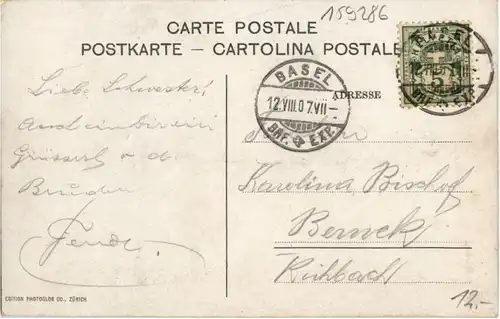 159286
CARTE POSTALE
POSTKARTE — CARTOLINA POSTALE
BASEL
12.VIII.07.VII-
BRF. EXP.
ADRESSE
5
BRF. EXP.
Liebe Schwester!
Auch ein
Grüsserl v. d.
Bruder
Karolina Bischof
Berneck
12.-
EDITION PHOTOGLOB CO., ZÜRICH